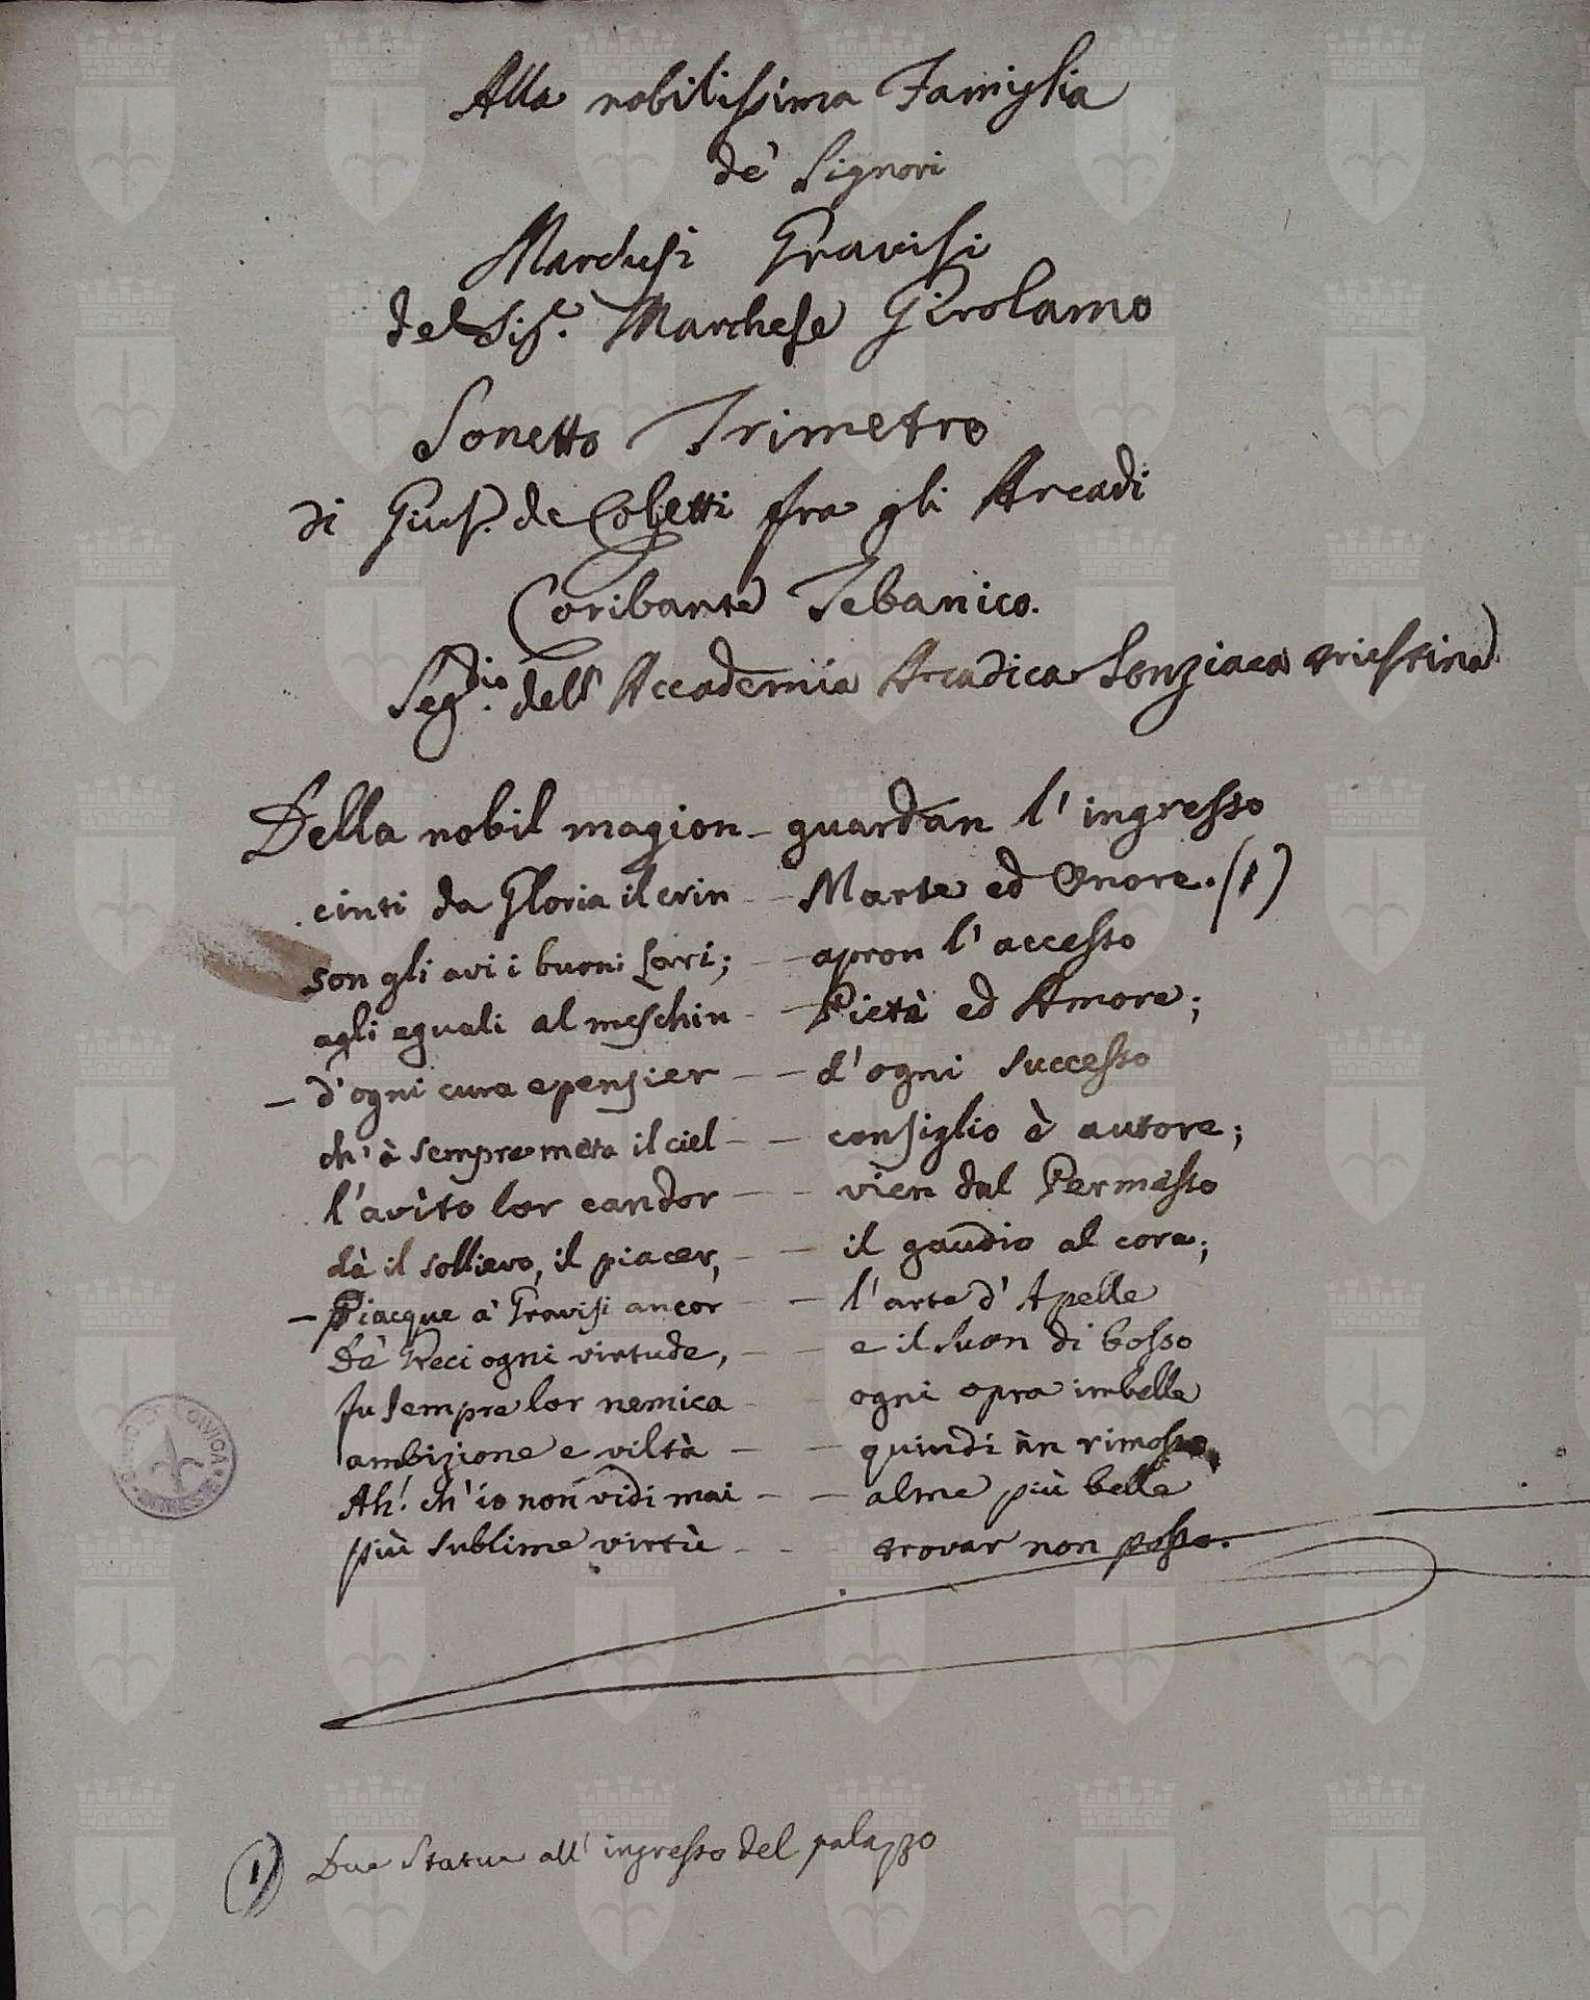 Alla nobilissima Famiglia
de' Signori
Marchesi Gravisi
del Sig.e Marchese Girolamo
Sonetto Trimetro
di Gius. de Coletti fra gli Arcadi
Coribante Tebanico.
Seg.rio dell' Accademia Arcadica Sonziaca triestina
Della nobil magion - guardan l' ingresso
cinti da Gloria il crin - - Marte ed Onore. (1)
son gli avi i buoni Larri; - - apron l' accesso
agli eguali al meschin - - Pietà ed Amore;
- d' ogni cura e pensier - - d' ogni successo
ch' à sempre meta il ciel - - consiglio è autore;
l' avito lor candor - - vien dal Permesso
dà il sollievo, il piacer, - - il gaudio al core;
- Piacque a' Gravisi ancor - - l' arte d' Apelle
De' Greci ogni virtude, - - e il suon di bosso
fu sempre lor nemica - - ogni opra imbelle
ambizione e viltà - - quindi in rimosso
Ah! ch' io non vidi mai - - alme più belle
più sublime virtù - - trovar non posso.
1) Due Statue all' ingresso del palazzo